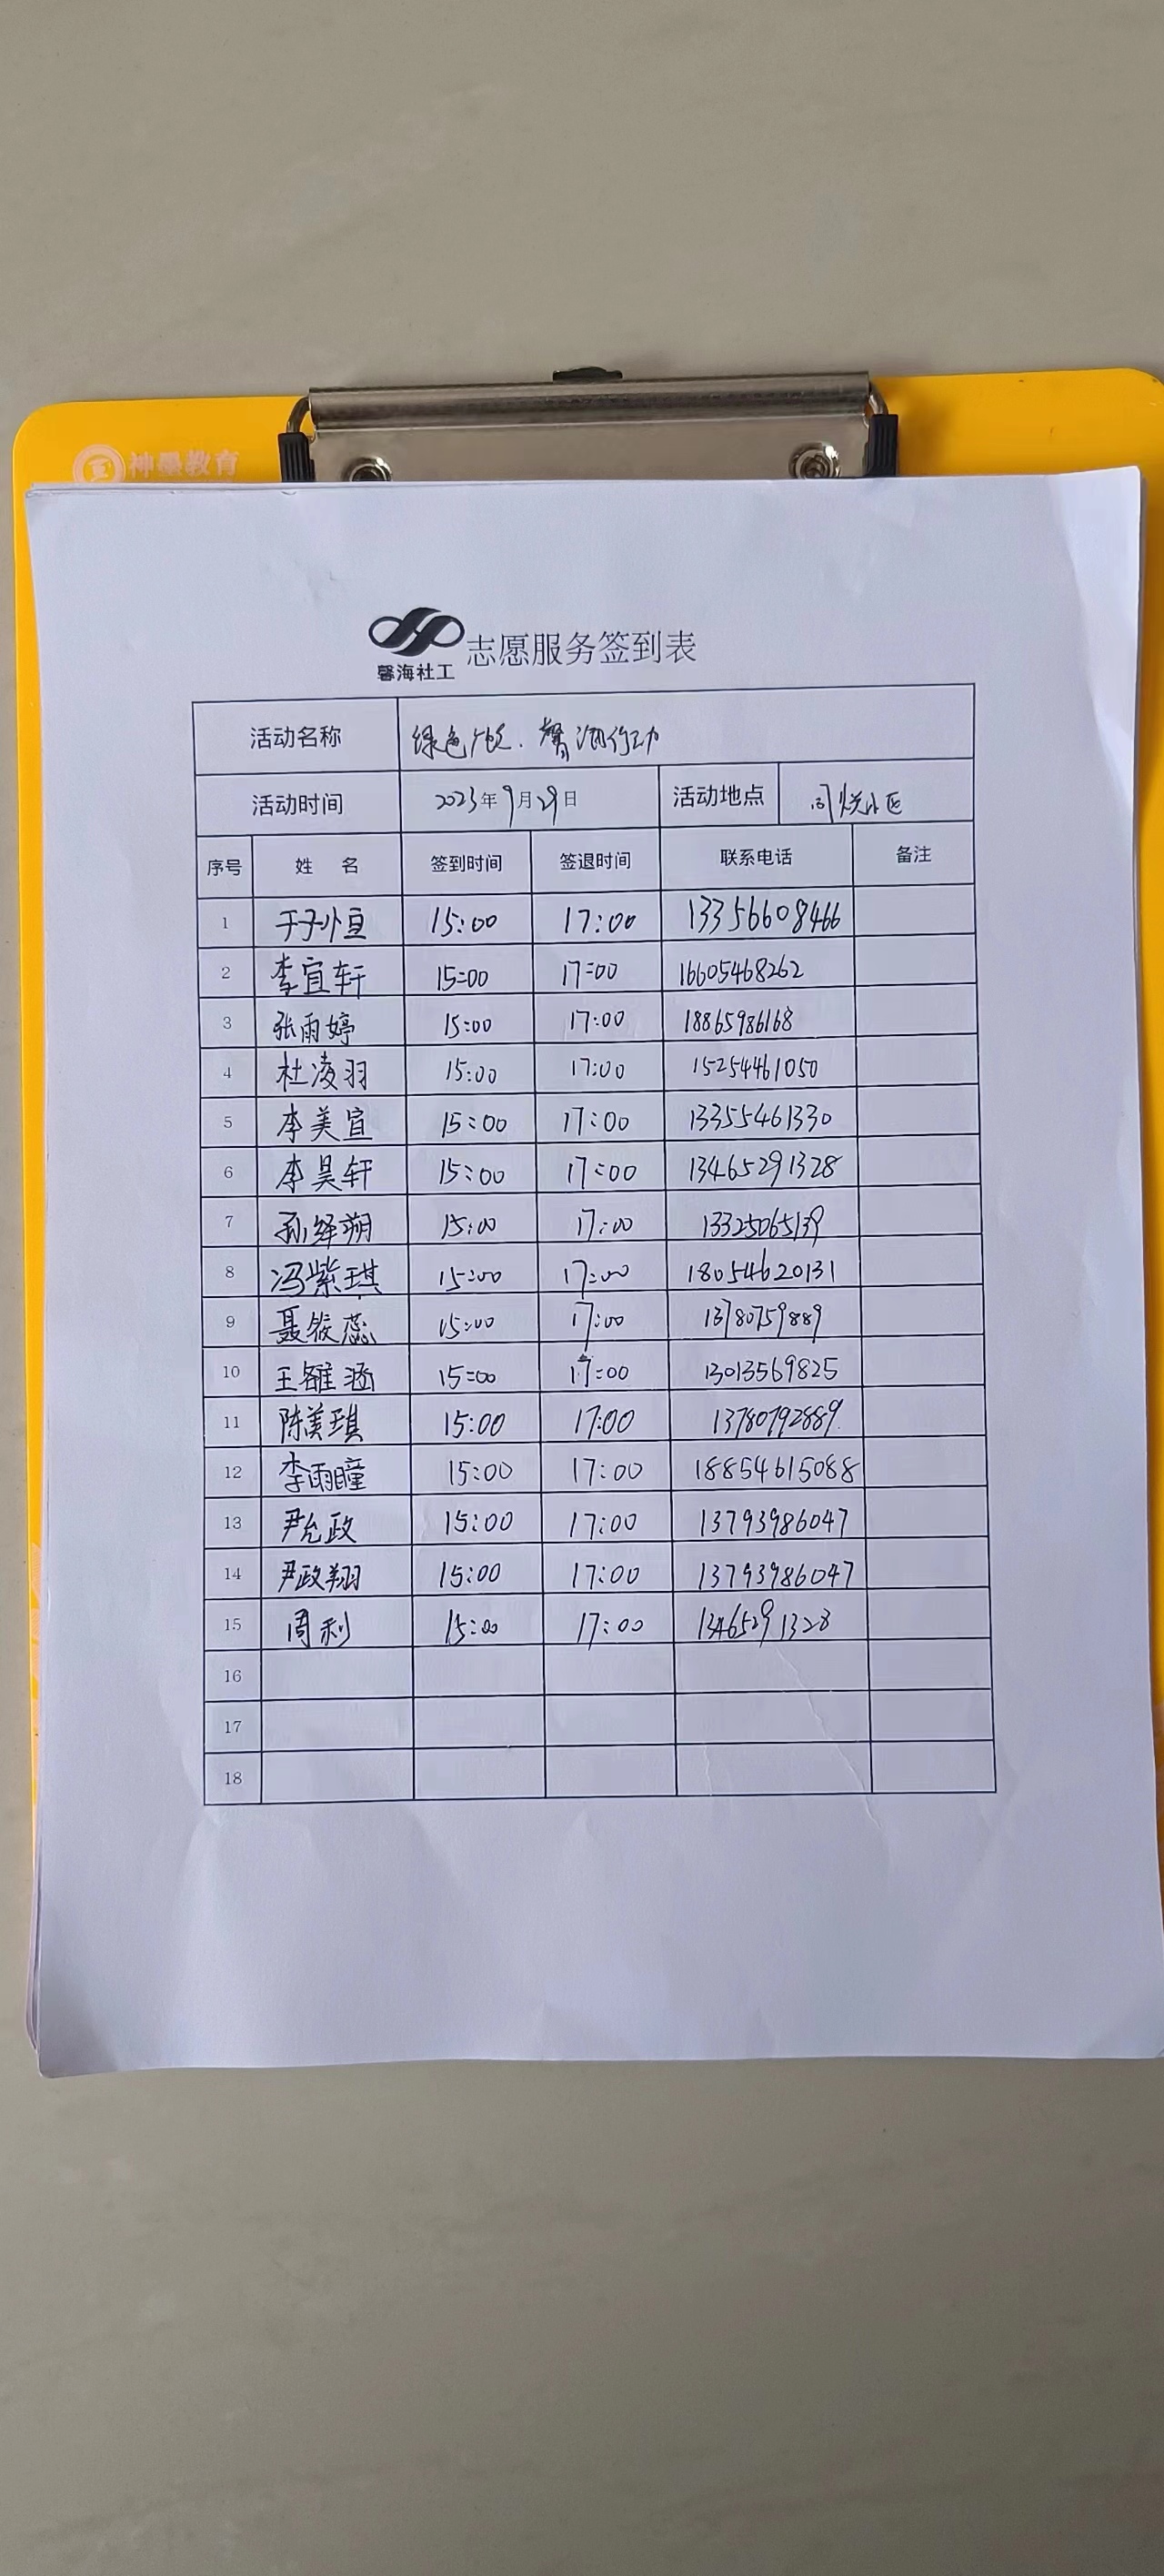 神墨教育
馨海社工 志愿服务签到表
活动名称 绿色 行动
活动时间 2023年9月29日 活动地点 小区
序号 姓 名 签到时间 签退时间 联系电话 备注
1 15:00 17:00 13356608466
2 李宜轩 15:00 17:00 16605468262
3 张雨婷 15:00 17:00 18865986168
4 杜凌羽 15:00 17:00 15254461050
5 李美宣 15:00 17:00 13355461330
6 李昊轩 15:00 17:00 13465291328
7 孙绎朔 15:00 17:00 13325065139
8 冯紫琪 15:00 17:00 18054620131
9 聂筱蕊 15:00 17:00 13780759889
10 15:00 17:00 13013569825
11 陈美琪 15:00 17:00 13780792889
12 李雨瞳 15:00 17:00 18854615088
13 尹允政 15:00 17:00 13793986047
14 尹政翔 15:00 17:00 13793986047
15 周利 15:00 17:00 13465291328
16
17
18